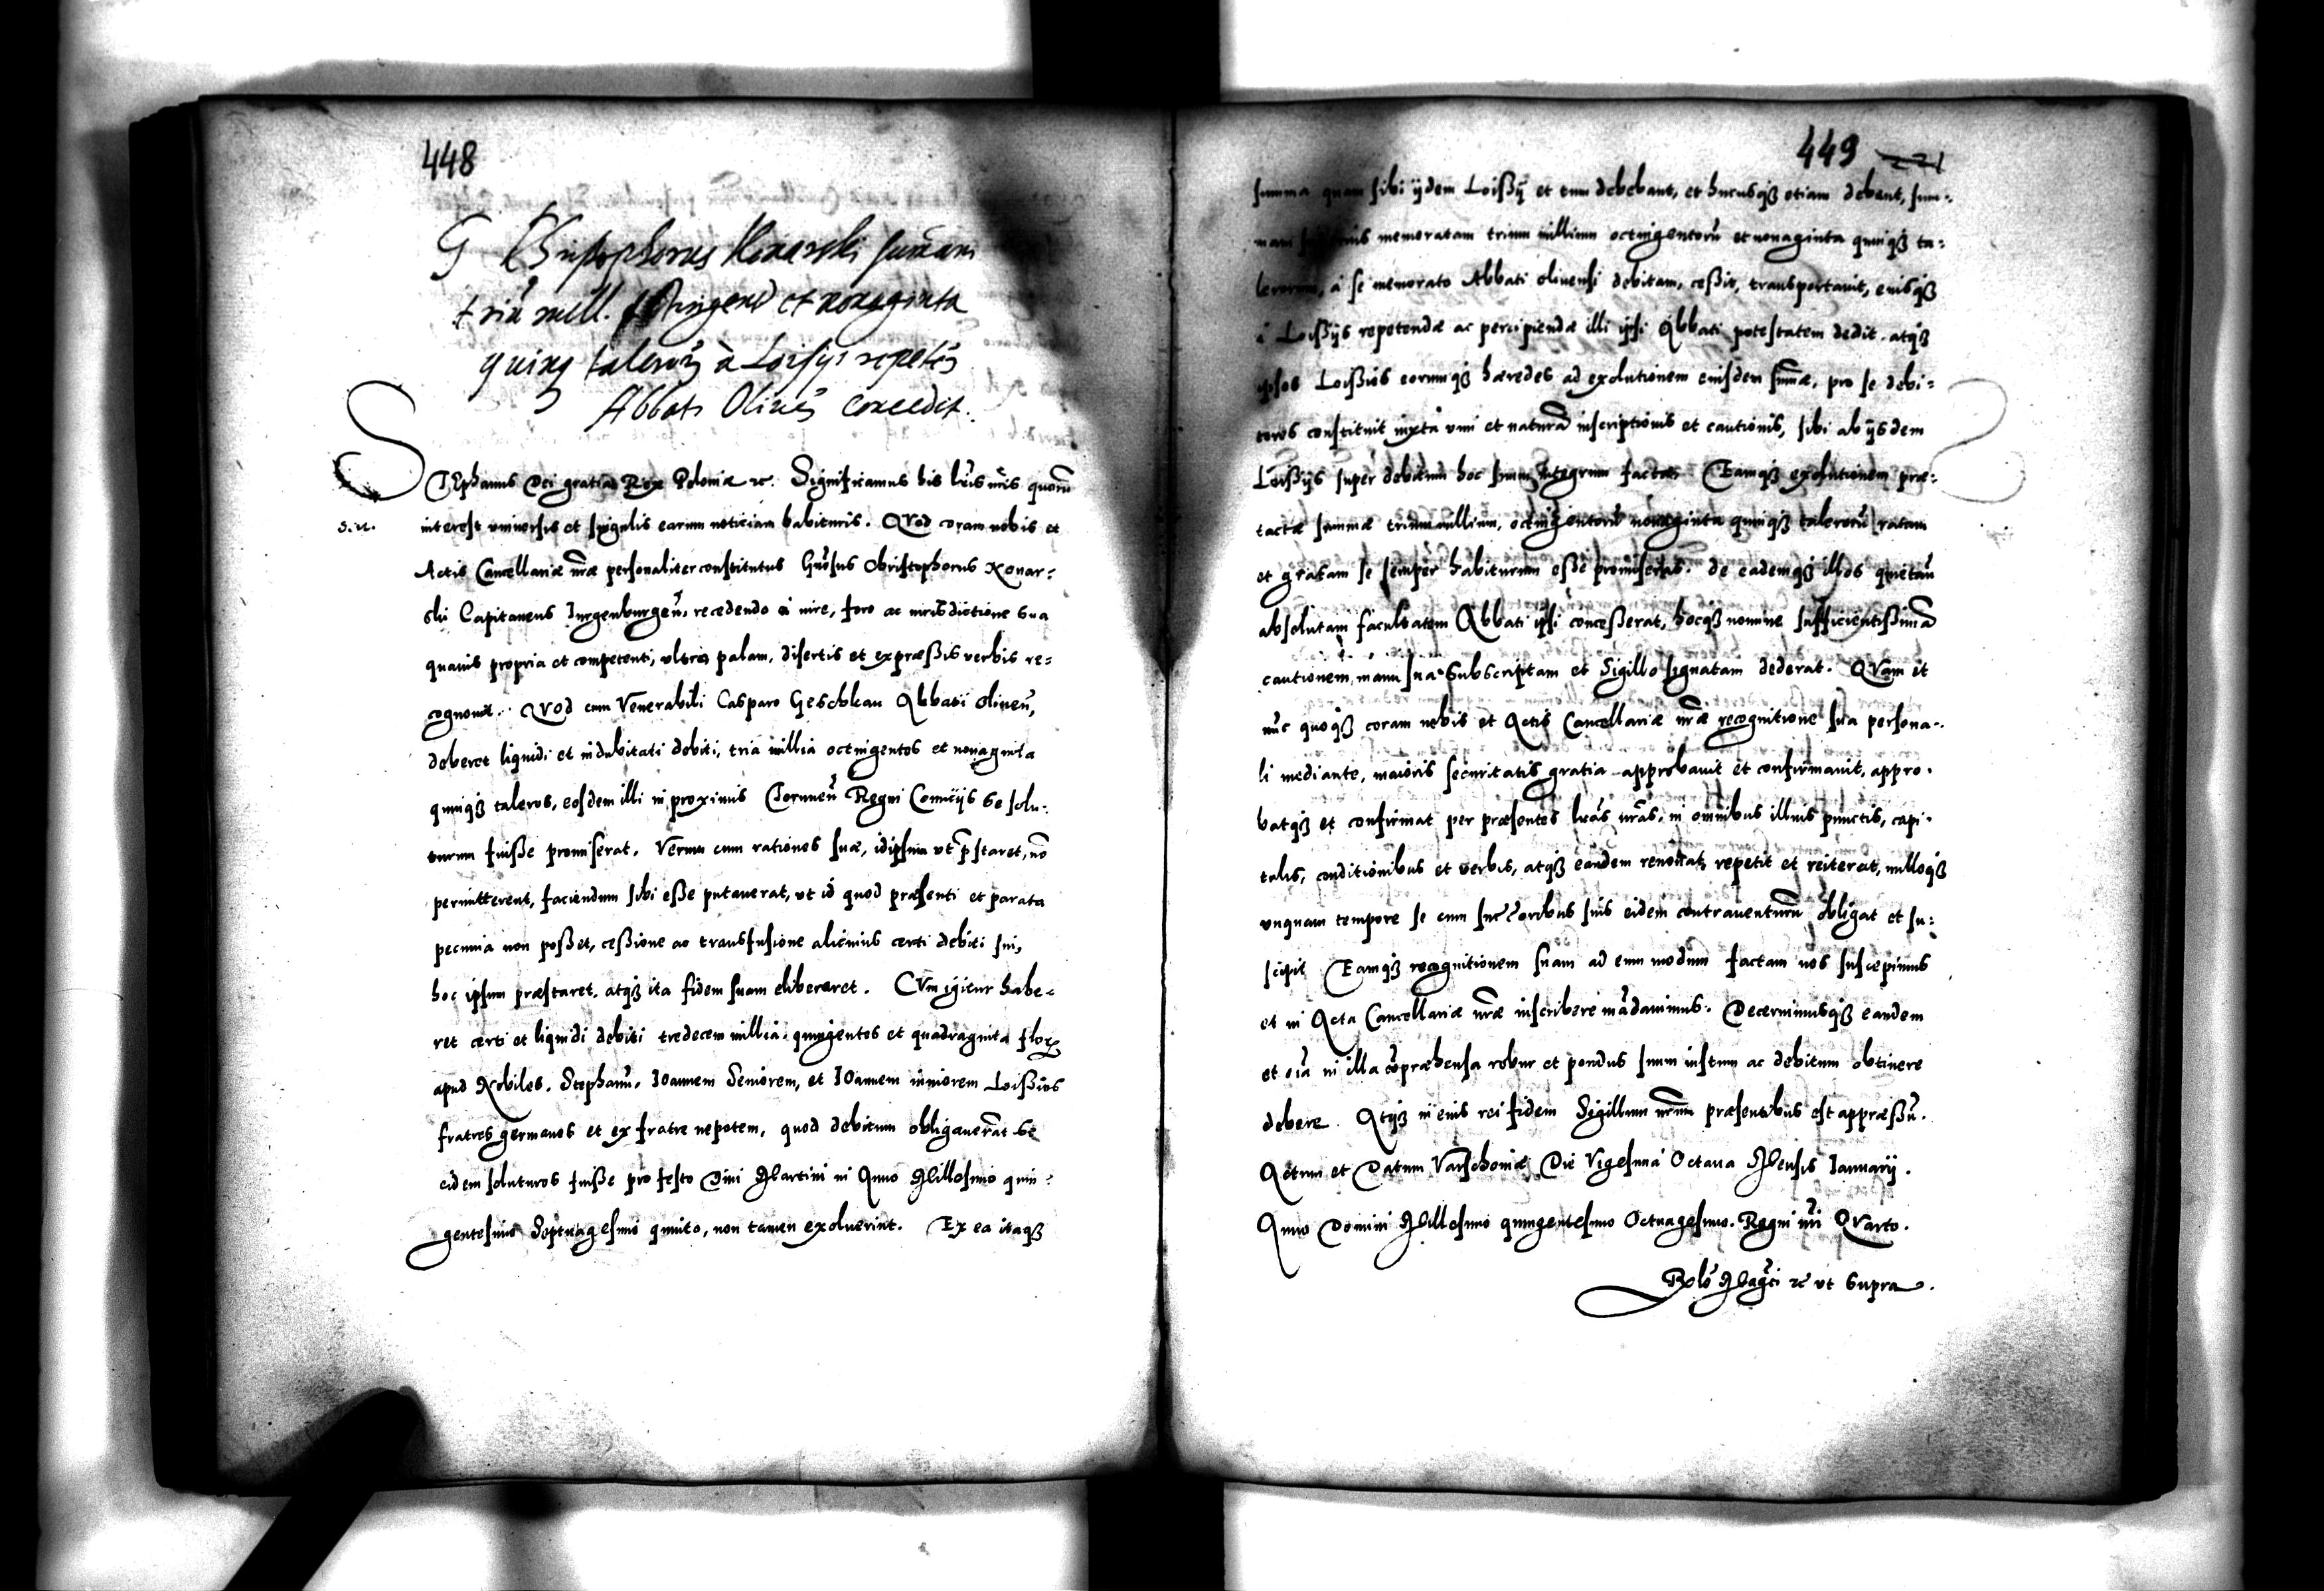 448
G Christophorus Konarski sum̄am
triū mill. octingent et nonaginta
quinq talerorū à Loisijs repetēd
Abbati Olivēs concedit.
STEphanus Dei gratia Rex Poloniæ ꝛc. Significamus his lr̄is nr̄is quorū
interest vniuersis et singulis earum noticiam habituris. QVod coram nobis et
Actis Cancellariæ nr̄æ personaliter constitutus Gn̄osus Christophorus Konar:
ski Capitaneus Jurgenburgeñ, recedendo à iure, foro ac iurisdictione sua
quauis propria et competenti, vltro palam, disertis et expræßis verbis re=
cognouit. QVod cum Venerabili Casparo Geschkau Abbati Oliueñ,
deberet liquidi et indubitati debiti, tria millia octingentos et nonaginta
quinqꝫ taleros, eosdem illi in proximis Toruneñ Regni Comitijs se solu:
turum fuiße promiserat. Verum cum rationes suæ, idipsum vt p̄staret, nō
permitterent, faciendum sibi eße putauerat, vt id quod præsenti et parata
pecunia non poßet, ceßione ac transfusione alicuius certi debiti sui,
hoc ipsum præstaret, atqꝫ ita fidem suam eliberaret. CVm igitur habe=
ret certi et liquidi debiti tredecem millia quingentos et quadraginta floꝝ
apud Nobiles. Stephanū, Joannem Seniorem, et JOannem iuniorem Loißios
fratres germanos et ex fratre nepotem, quod debitum obligauerāt se
eidem soluturos fuiße pro festo Diui Martini in Anno Millesimo quin=
gentesimo Septuagesimo quinto, non tamen exoluerint. Ex ea itaqꝫ
449
summa quam sibi ijdem Loißij et tum debebant, et hucusqꝫ etiam debent, sum=
mam memoratam trium millium octingentorū et nonaginta quinqꝫ ta=
lerorum, à se memorato Abbati Oliuensi debitam, ceßit, transportauit, eiusqꝫ
à Loißijs repetendæ ac percipiendæ illi ipsi Abbati potestatem dedit. atqꝫ
ipsos Loißios eorumqꝫ hæredes ad exolutionem eiusdem sum̄æ, pro se debi=
tores constituit iuxta vim et naturā inscriptionis et cautionis, sibi ab ijsdem
Loißijs super debitum hoc suum integrum factæ. Eamqꝫ exolutionem præ=
tactæ summæ trium millium, octingentorū nonaginta quinqꝫ talerorū ratam
et gratam se semper habiturum eße promiserat. de eademqꝫ illos quietan̄
absolutam facultatem Abbati ipsi conceßerat, hocqꝫ nomine sufficientißimā
cautionem, manu sua subscriptam et Sigillo signatam dederat. QVam et
nūc quoqꝫ coram nobis et Actis Cancellariæ nr̄æ recognitione sua persona=
li mediante, maioris securitatis gratia approbauit et confirmauit, appro=
batqꝫ et confirmat per præsentes lr̄as nr̄as, in omnibus illius punctis, capi=
tulis, conditionibus et verbis, atqꝫ eandem renouat, repetit et reiterat, nulloqꝫ
vnquam tempore se cum succeoribus suis eidem contrauenturū obligat et su:
scipit Eamqꝫ recognitionem suam ad eum modum factam nos suscepimus
et in Acta Cancellariæ nr̄æ inscribere mādauimus. Decernimusqꝫ eandem
et oīa in illa cōpræhensa robur et pondus suum iustum ac debitum obtinere
debere. Atqꝫ in eius rei fidem Sigillum nr̄um præsentibus est appræßū.
Actum et Datum Varschouiæ Die Vigesima Octaua Mensis Januarij.
Anno Domini Millesimo quingentesimo Octuagesimo. Regni nr̄i QVarto.
Relō Mag̃ci ꝛc̄ vt supra.